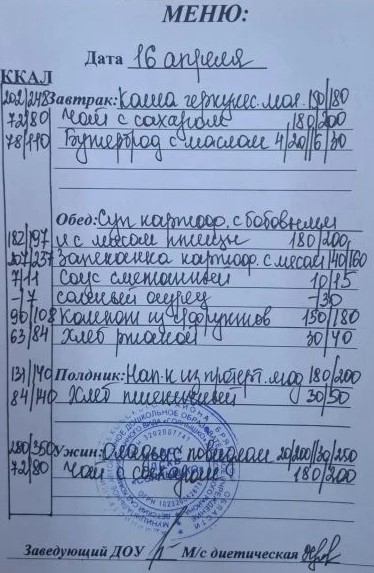 МЕНЮ:
Дата 16 апреля
ККАЛ
202/248 Завтрак: Каша геркулес. мол. 150/180
72/80 Чай с сахаром 180/200
78/110 Бутерброд с маслом 4/20//6/30
Обед: Суп картоф. с бобовыми
182/197 и с мясом птицы 180/200
207/237 Запеканка картоф. с мясом 140/160
7/11 Соус сметанный 10/15
-/7 соленый огурец -/30
90/108 Компот из с/фруктов 150/180
63/84 Хлеб ржаной 30/40
131/140 Полдник: Нап-к из 180/200
84/140 Хлеб пшеничный 30/50
280/350 Ужин: Оладьи с повидлом 20/200//30/250
72/80 Чай с сахаром 180/200
Заведующий ДОУ М/с диетическая